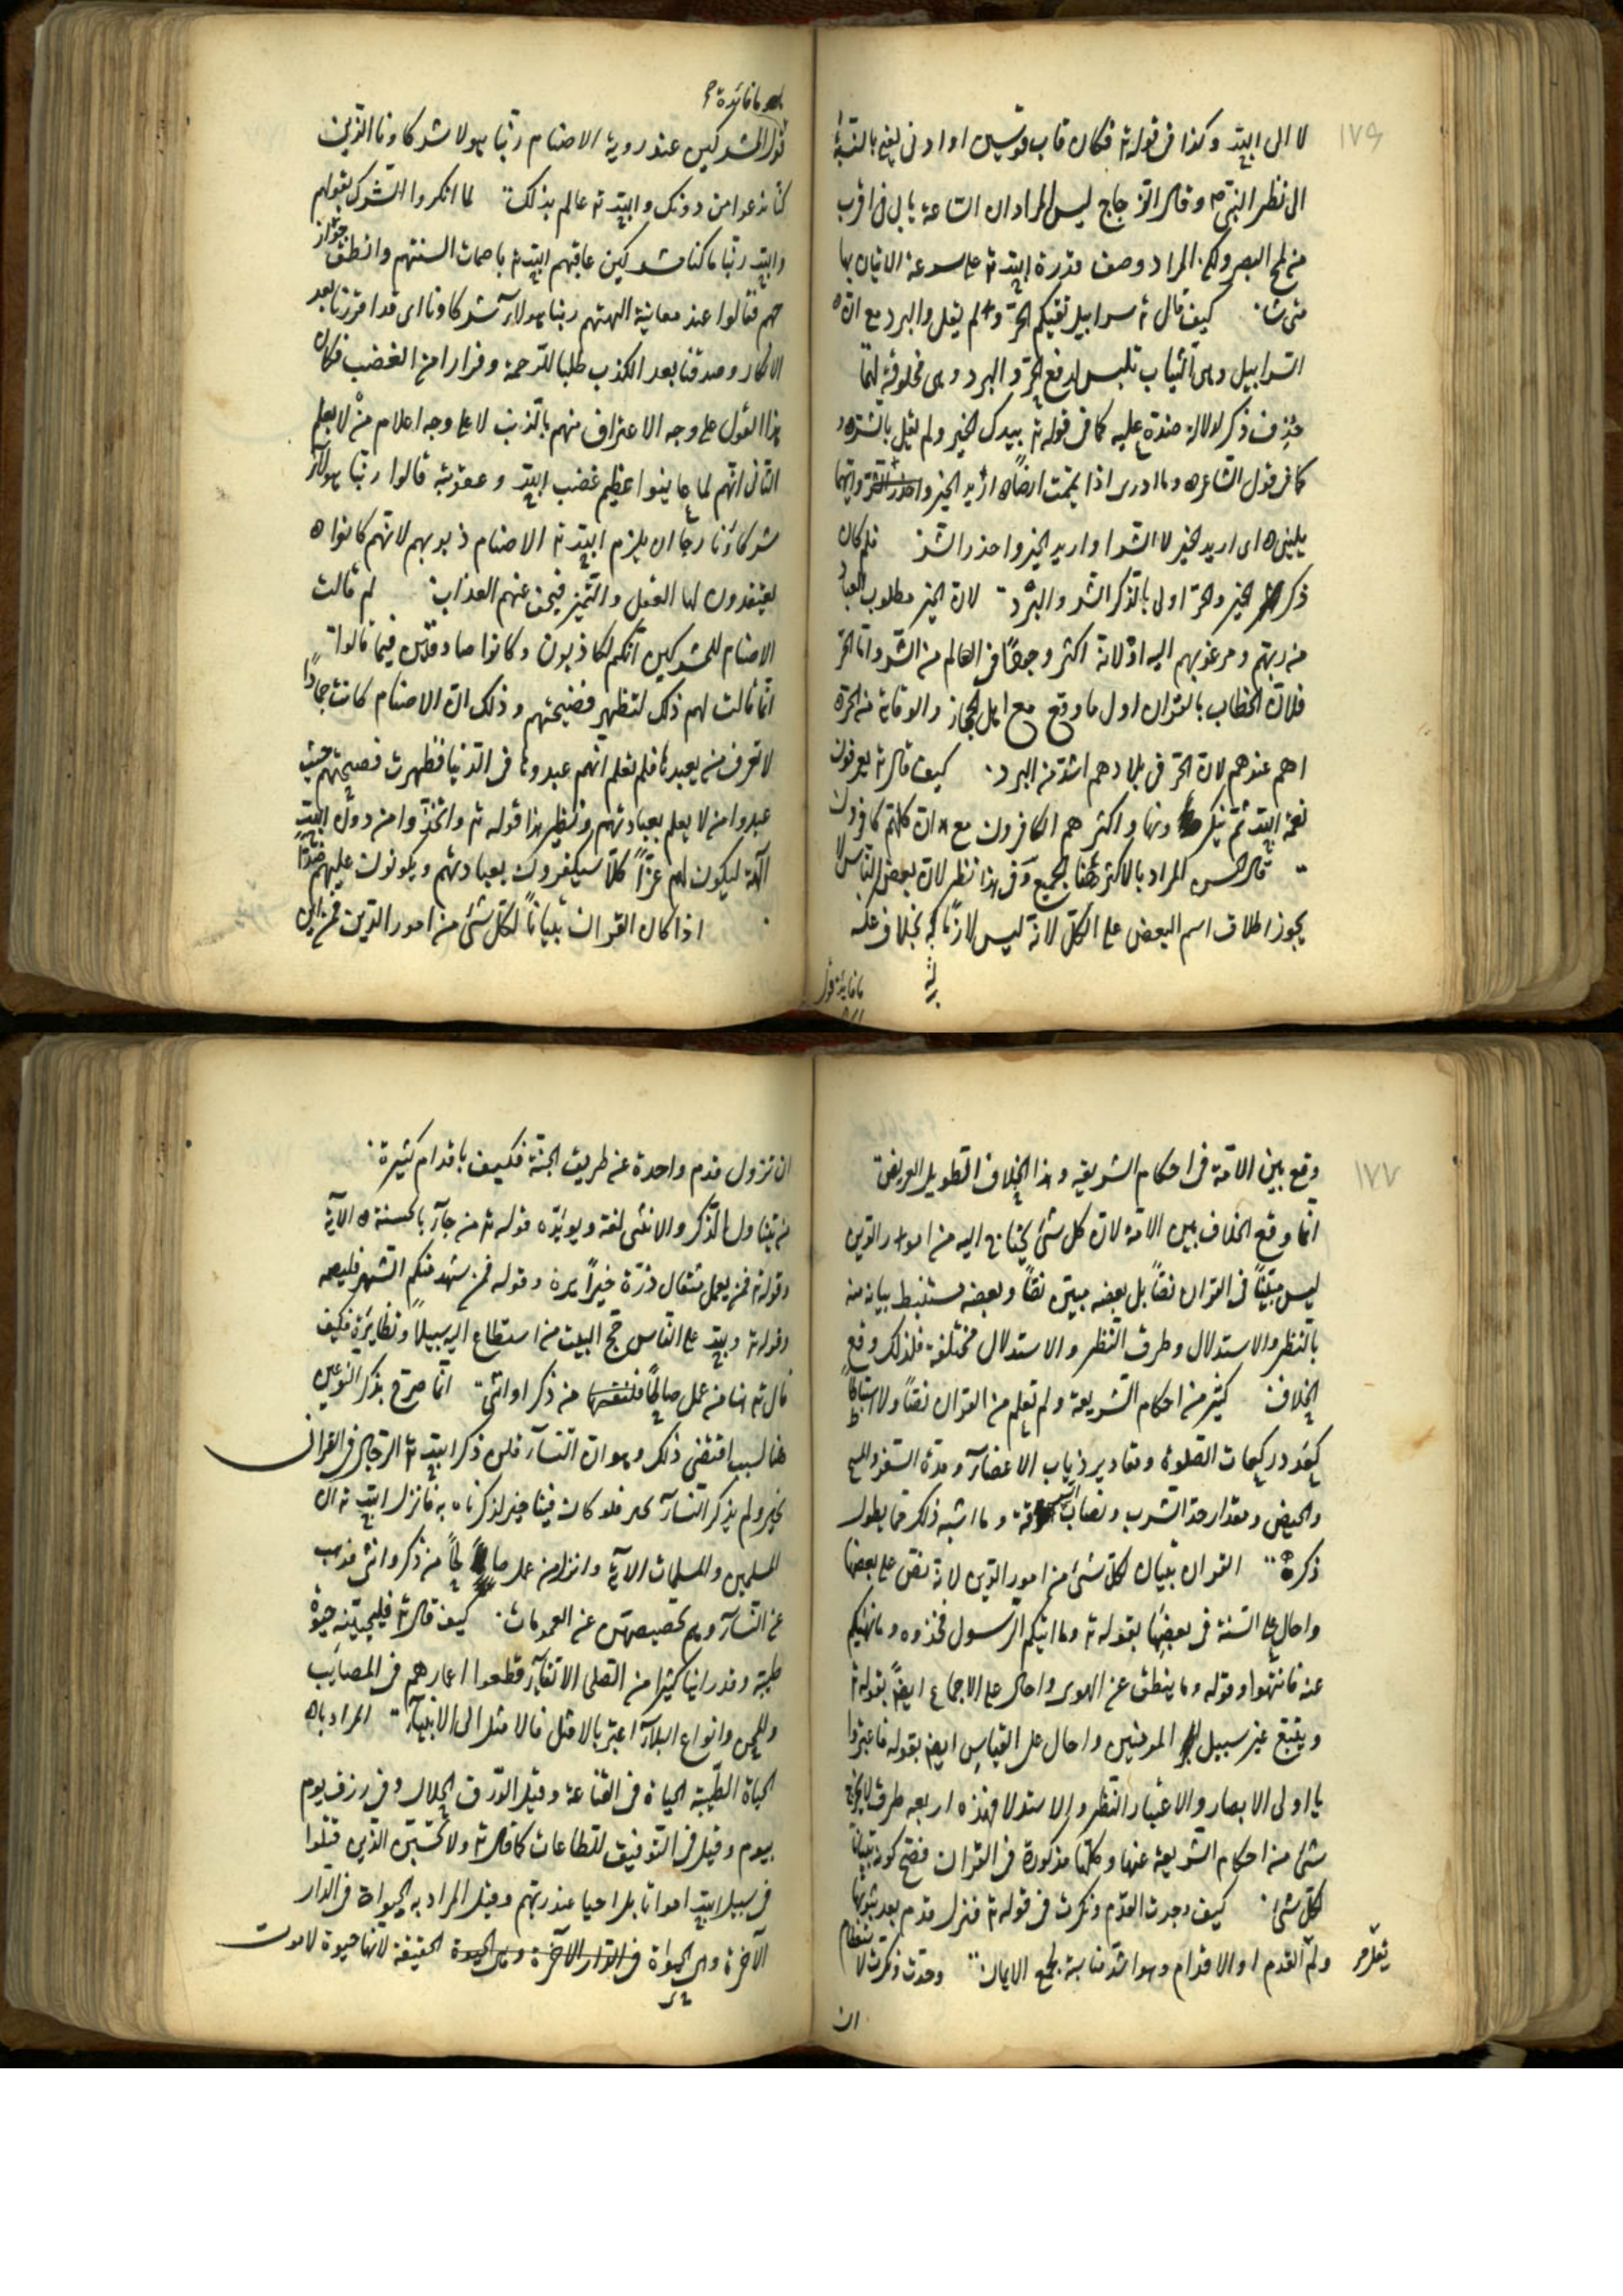 ١٧٦
لا الى الله وكذا فى قوله تع فكان قاب قوسين او ادنى يعنى بالنسبة
الى نظر النبى ص وقال الزجاج ليس المراد ان الساعة تأتى فى اقرب
من لمح البصر ولكن المراد وصف قدرة الله تع على سرعة الاتيان بها
متى شاء كيف قال تع سرابيل تقيكم الحر ولم يقل والبرد مع ان
السرابيل وهى الثياب تلبس لدفع الحر والبرد وهى مخلوقة لهما
حذف ذكر لدلالة ضده عليه كما فى قوله تع بيدك الخير ولم يقل بالشر
كما فى قول الشاعر وما ادرى اذا يممت ارضا اريد الخير ايهما
يلينى اى اريد الخير لا الشر او اريد الخير واحذر الشر فلم كان
ذكر الخير والحر اولى بالذكر الشر والبرد لان الخير مطلوب العباد
من ربهم ومرغوبهم اليه او لانه اكثر وجودا فى العالم من الشر واما الحر
فلان الخطاب بالقران اول ما وقع مع اهل الحجاز والوقاية من الحر
اهم عندهم لان الحر فى بلادهم اشد من البرد كيف قال تع يعرفون
نعمة الله ثم ينكرونها واكثرهم الكافرون مع ان كلهم كافرون
قال الحسن المراد بالاكثر هنا الجميع وفى هذا نظر لان بعض الناس لا
يجوز اطلاق اسم البعض على الكل لانه ليس لازما له بخلاف عكسه
ما فايدة قول
ما فائدة
قول المشركين عند روية الاصنام ربنا هولا شركاونا الذين
كنا ندعوا من دونك والله تع عالم بذلك لما انكروا الشرك بقولهم
والله ربنا ما كنا مشركين عاقبهم الله تع باصمات السنتهم وانطق جوار
حهم فقالوا عند معاينة الهتهم ربنا هولاء شركاونا اى قد اقررنا بعد
الانكار وصدقنا بعد الكذب طلبا للرحمة وفرارا من الغضب فكان
هذا القول على وجه الاعتراف منهم بالذنب لا على وجه اعلام من لا يعلم
الثانى انهم لما عاينوا عظيم غضب الله وعقوبته قالوا ربنا هولاء
شركاؤنا رجا ان يلزم الله تع الاصنام ذنوبهم لانهم كانوا
يعتقدون لها العقل والتميز فيخف عنهم العذاب لم قالت
الاصنام للمشركين انكم لكاذبون وكانوا صادقين فيما قالوا
انما قالت لهم ذلك لتظهر فضيحتهم وذلك ان الاصنام كانت جمادا
لا تعرف من يعبدها فلم تعلم انهم عبدوها فى الدنيا فظهرت فضيحتهم حيث
عبدوا من لا يعلم بعبادتهم ونظير هذا قوله تع واتخذوا من دون الله
آلهة ليكون لهم عزا كلا سيكفرون بعبادتهم ويكونون عليهم ضدا
اذا كان القران تبيانا لكل شئ من امور الدين فمن اين
١٧٧
وقع بين الامة فى احكام الشريعة هذا الخلاف الطويل العريض
انما وقع الخلاف بين الامة لان كل شئ يحتاج اليه من امور الدين
ليس مبينا فى القران نصا بل بعضه مبين نصا وبعضه مستنبط بيانه منه
بالنظر والاستدلال وطرق النظر والاستدلال مختلفة فلذلك وقع
الخلاف كثير من احكام الشريعة ولم تعلم من القران نصا ولا استنباطا
كعدد ركعات الصلوة ومقادير ديات الاعضاء ومدة السفر والمسح
والحيض ومقدار حد الشرب ونصاب السرقة وما اشبه ذلك مما يطول
ذكره القران تبيان لكل شئ من امور الدين لانه نص على بعضها
واحال على السنة فى بعضها بقوله تع وما اتيكم الرسول فخذوه وما نهيكم
عنه فانتهوا وقوله وما ينطق عن الهوى واحال على الاجماع ايضا بقوله تع
ويتبع غير سبيل المومنين واحال على القياس ايضا بقوله فاعتبروا
يا اولى الابصار والاعتبار النظر والاستدلال فهذه اربعة طرق لا يخرج
شئ من احكام الشريعة عنها وكلها مذكورة فى القران فصح كونه تبيانا
لكل شئ كيف وحدت القدم ونكرت فى قوله تع فتزل قدم بعد ثبوتها
ولم يقل القدم او الاقدام وهو اشد مناسبة بجمع الايمان وحدت ونكرت لاستعظام
ان
ان تزول قدم واحدة عن طريق الجنة فكيف باقدام كثيرة
من يتناول الذكر والانثى لغة ويويده قوله تع من جاء بالحسنة الآية
وقوله تع فمن يعمل مثقال ذرة خيرا يره وقوله فمن شهد منكم الشهر فليصمه
وقوله تع ولله على الناس حج البيت من استطاع اليه سبيلا ونظايره فكيف
قال تع هنا من عمل صالحا من ذكر او انثى انما صرح بذكر النوعين
هنا لسبب اقتضى ذلك وهو ان النساء قلن ذكر الله تع الرجال فى القران
بخير ولم يذكر النساء بخير فلو كان فينا خير لذكرنا به فانزل الله تع ان
المسلمين والمسلمات الآية وانزل من عمل صالحا من ذكر وانثى
عن النساء وهم تخصيصهن عن العمومات كيف قال تع فلنحيينه حيوة
طيبة وقد راينا كثيرا من الصلحا الاتقياء قطعوا اعمارهم فى المصايب
والمحن وانواع البلاء اعتبر بالامثل فالامثل الى الانبياء المراد بال
الحياة الطيبة الحياة فى القناعة وقيل الرزق الحلال وفى رزق يوم
بيوم وقيل فى التوفيق للطاعات كما قال تع ولا تحسبن الذين قتلوا
فى سبيل الله امواتا بل احيا عند ربهم وقيل المراد به الحيواة فى الدار
الآخرة وهى الحيوة الحقيقة لانها حيوة لا موت